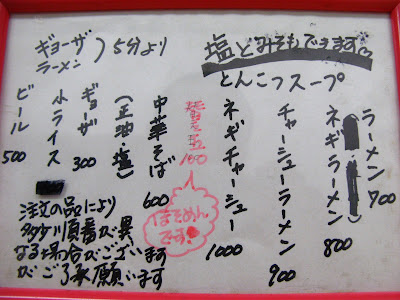 塩とみそもできます
とんこつスープ
ラーメン 700
ネギラーメン 800
チャーシューラーメン 900
ネギチャーシュー 1000
替玉 100
ほそめんです!
中華そば 600
(正油・塩)
ギョーザ 300
小ライス
ビール 500
ギョーザ
ラーメン
)5分より
注文の品により
多少順番が異
なる場合がございます
がご了承願います